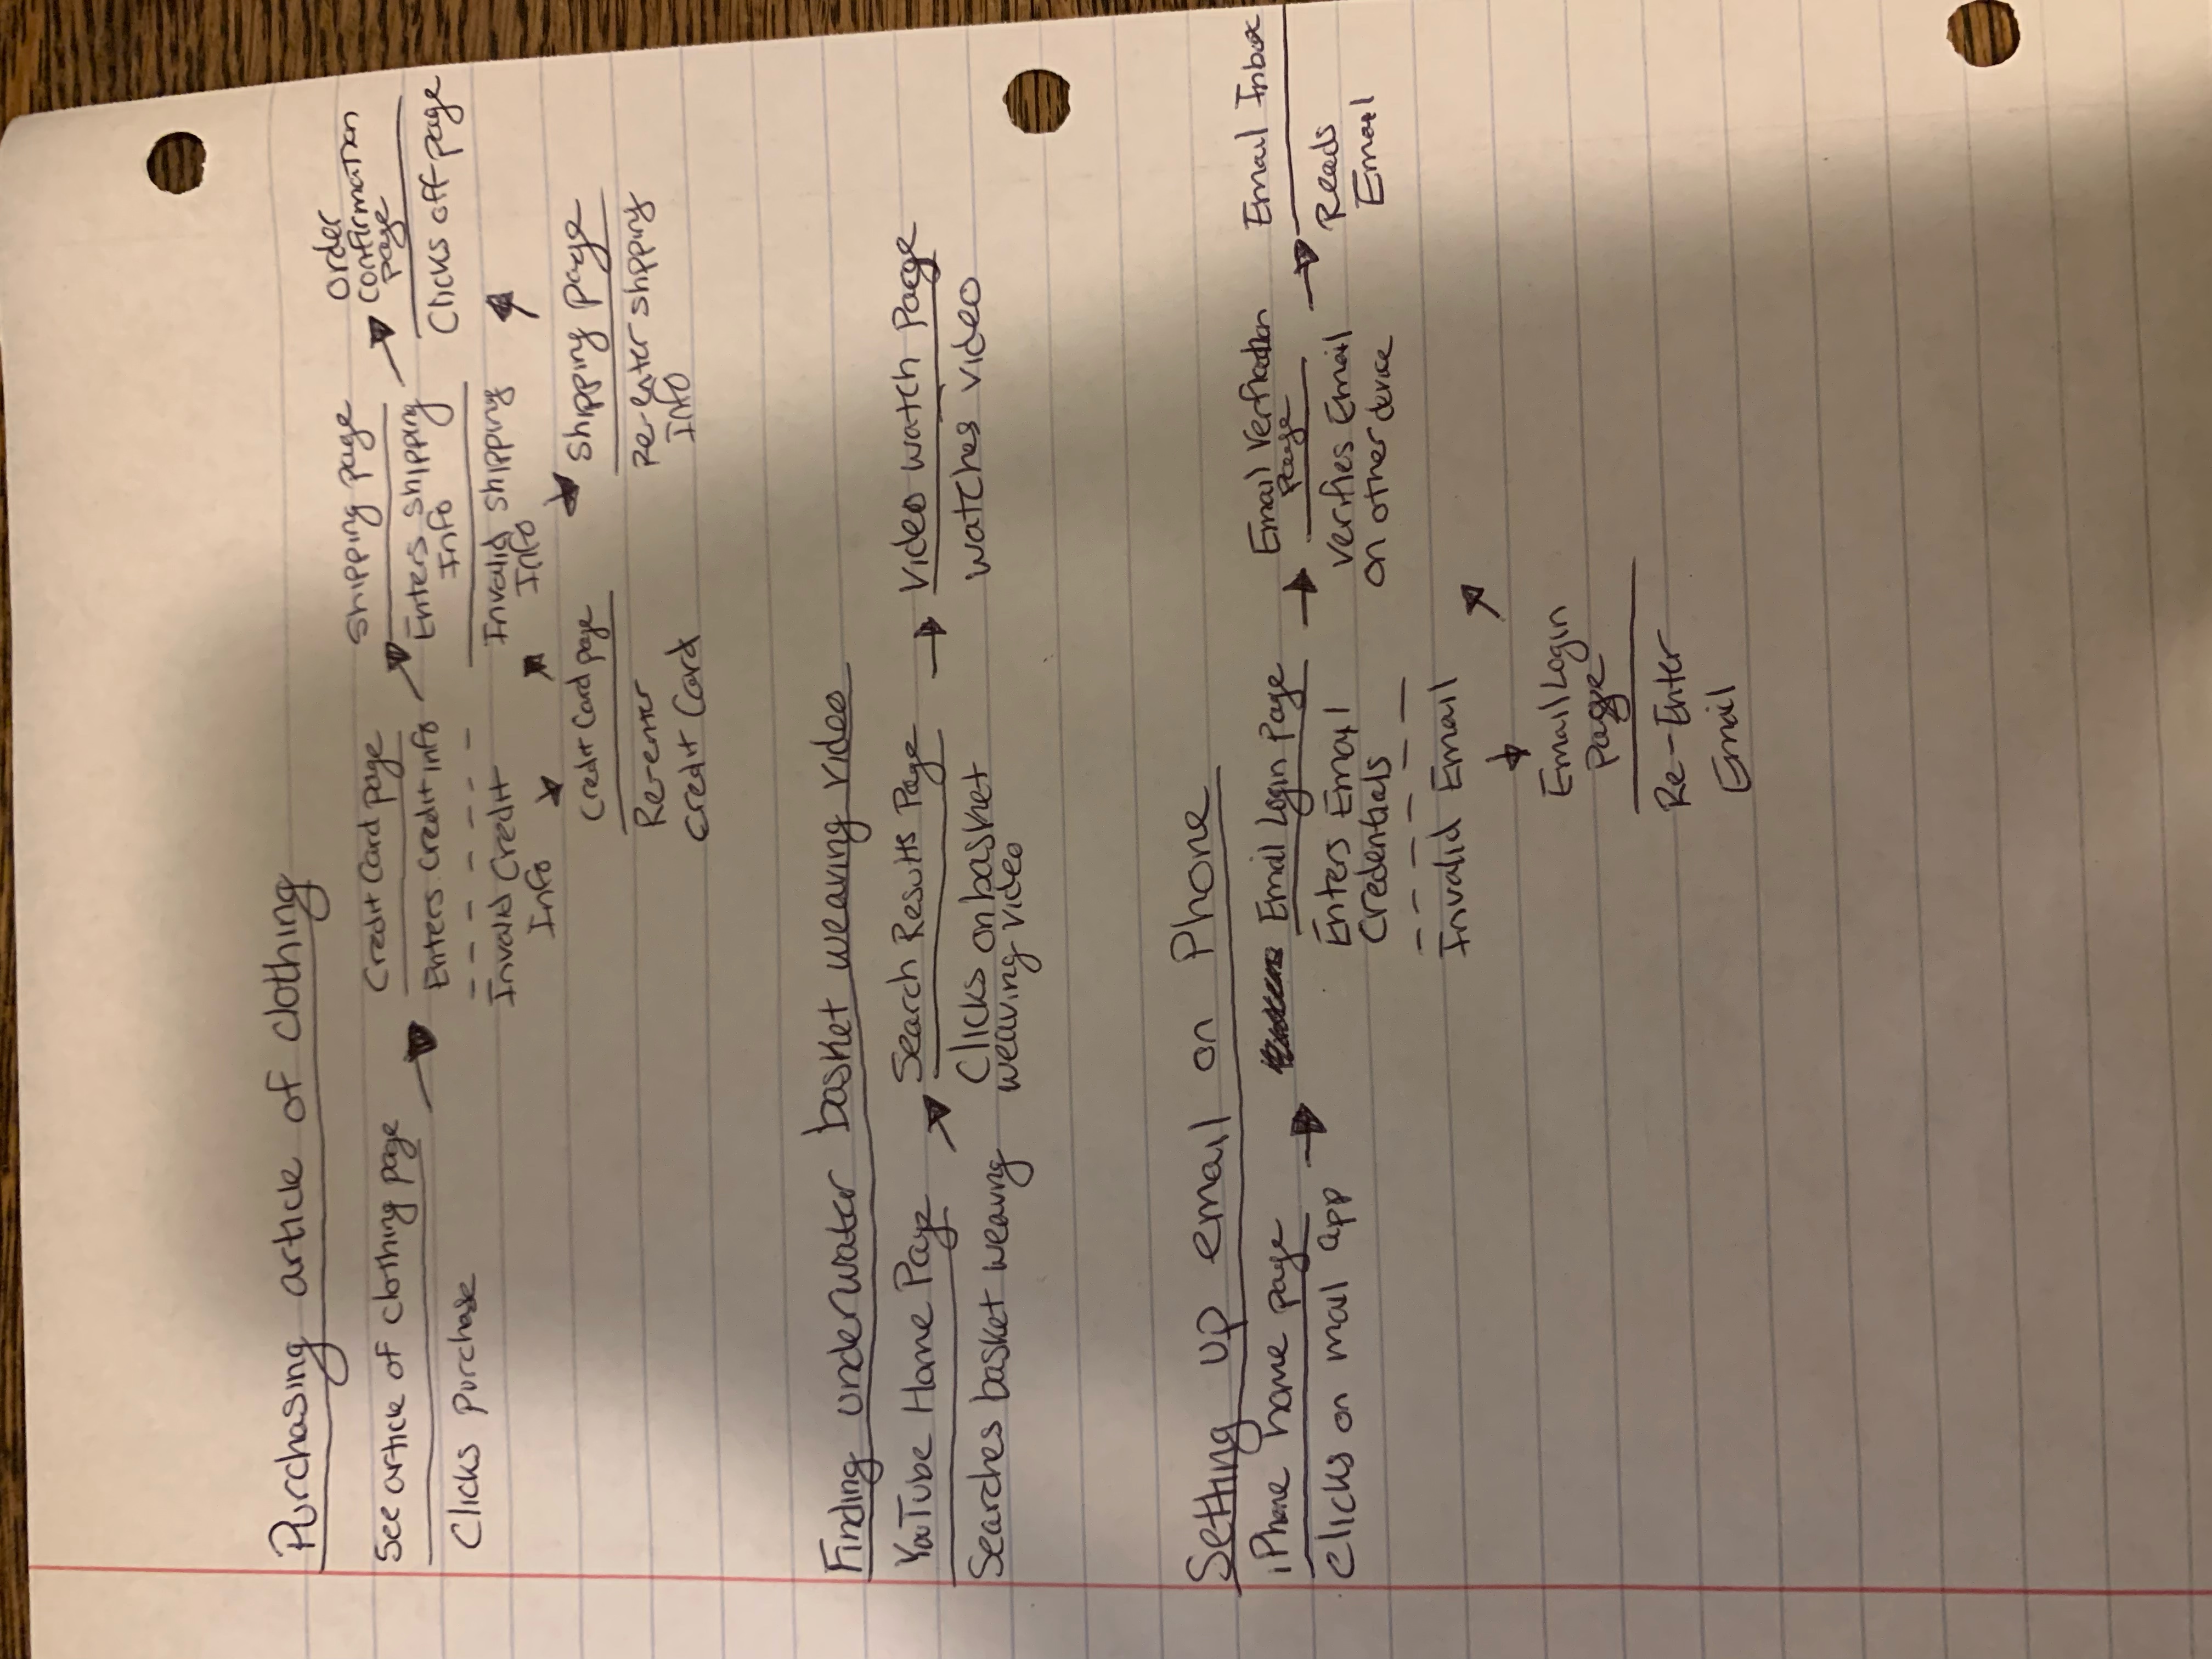 Purchasing article of clothing
See article of clothing page
Clicks purchase
Credit Card page
Enters Credit info
Invalid Credit
Info
Credit Card page
Re-enter
credit Card
Shipping page
Enters shipping
Info
Invalid shipping
Info
Shipping page
Re-enter shipping
Info
order
confirmation
page
Clicks off page
Finding underwater basket weaving video
YouTube Home Page
Searches basket weaving
Search Results Page
Clicks on basket
weaving video
Video watch Page
watches video
Setting up email on Phone
iPhone home page
Clicks on mail app
Email Login Page
Enters Email
Credentials
Invalid Email
Email Login
Page
Re-Enter
Email
Email Verification
page
verifies Email
on other device
Email Inbox
Reads
Email